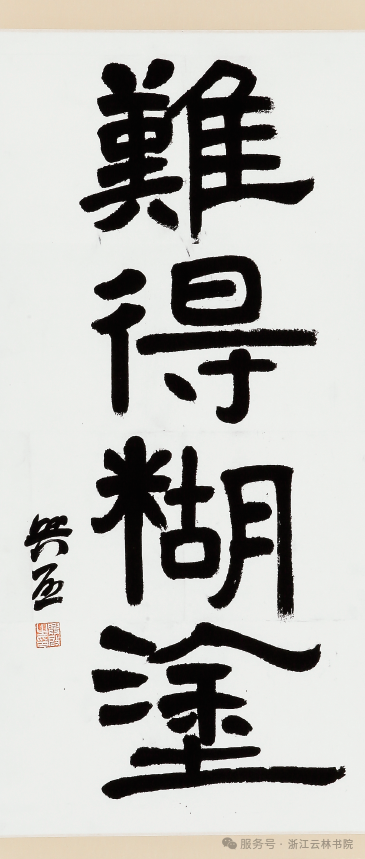 難得糊塗
服务号 · 浙江云林书院